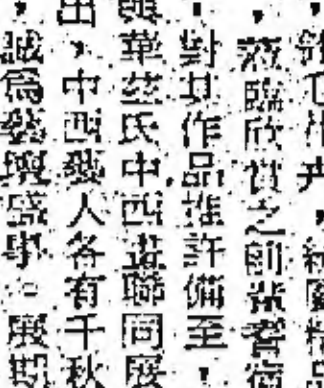 ，蒞臨欣賞之前輩耆宿
，對其作品推許備至，
與華茲氏中西畫聯同展
出，中西藝人各有千秋
，誠爲藝壇盛事。展期